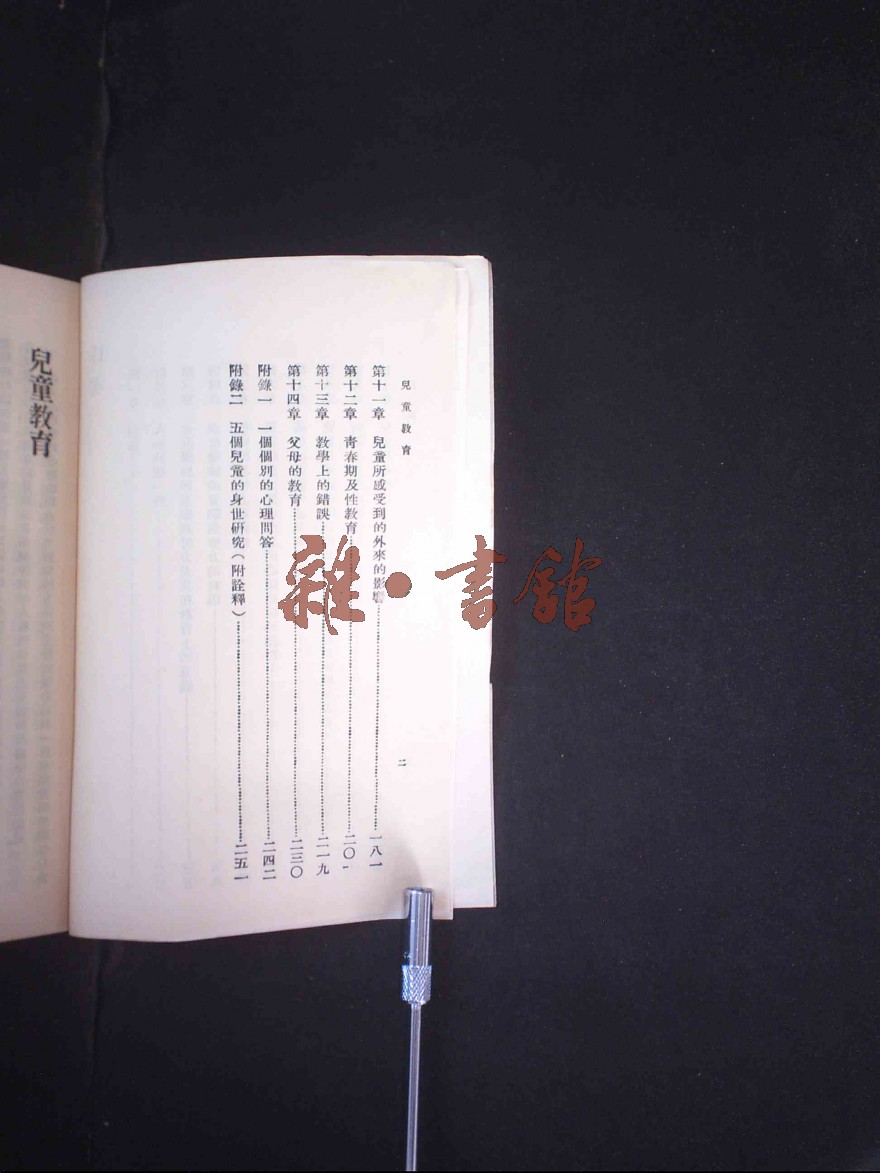 兒童教育
二
第十一章　兒童所感受到的外來的影響……一八一
第十二章　青春期及性教育……二〇一
第十三章　教學上的錯誤……二一九
第十四章　父母的教育……二三〇
附錄一　一個個別的心理問答……二四二
附錄二　五個兒童的身世研究（附詮釋）……二五一
兒童教育
雜・書館